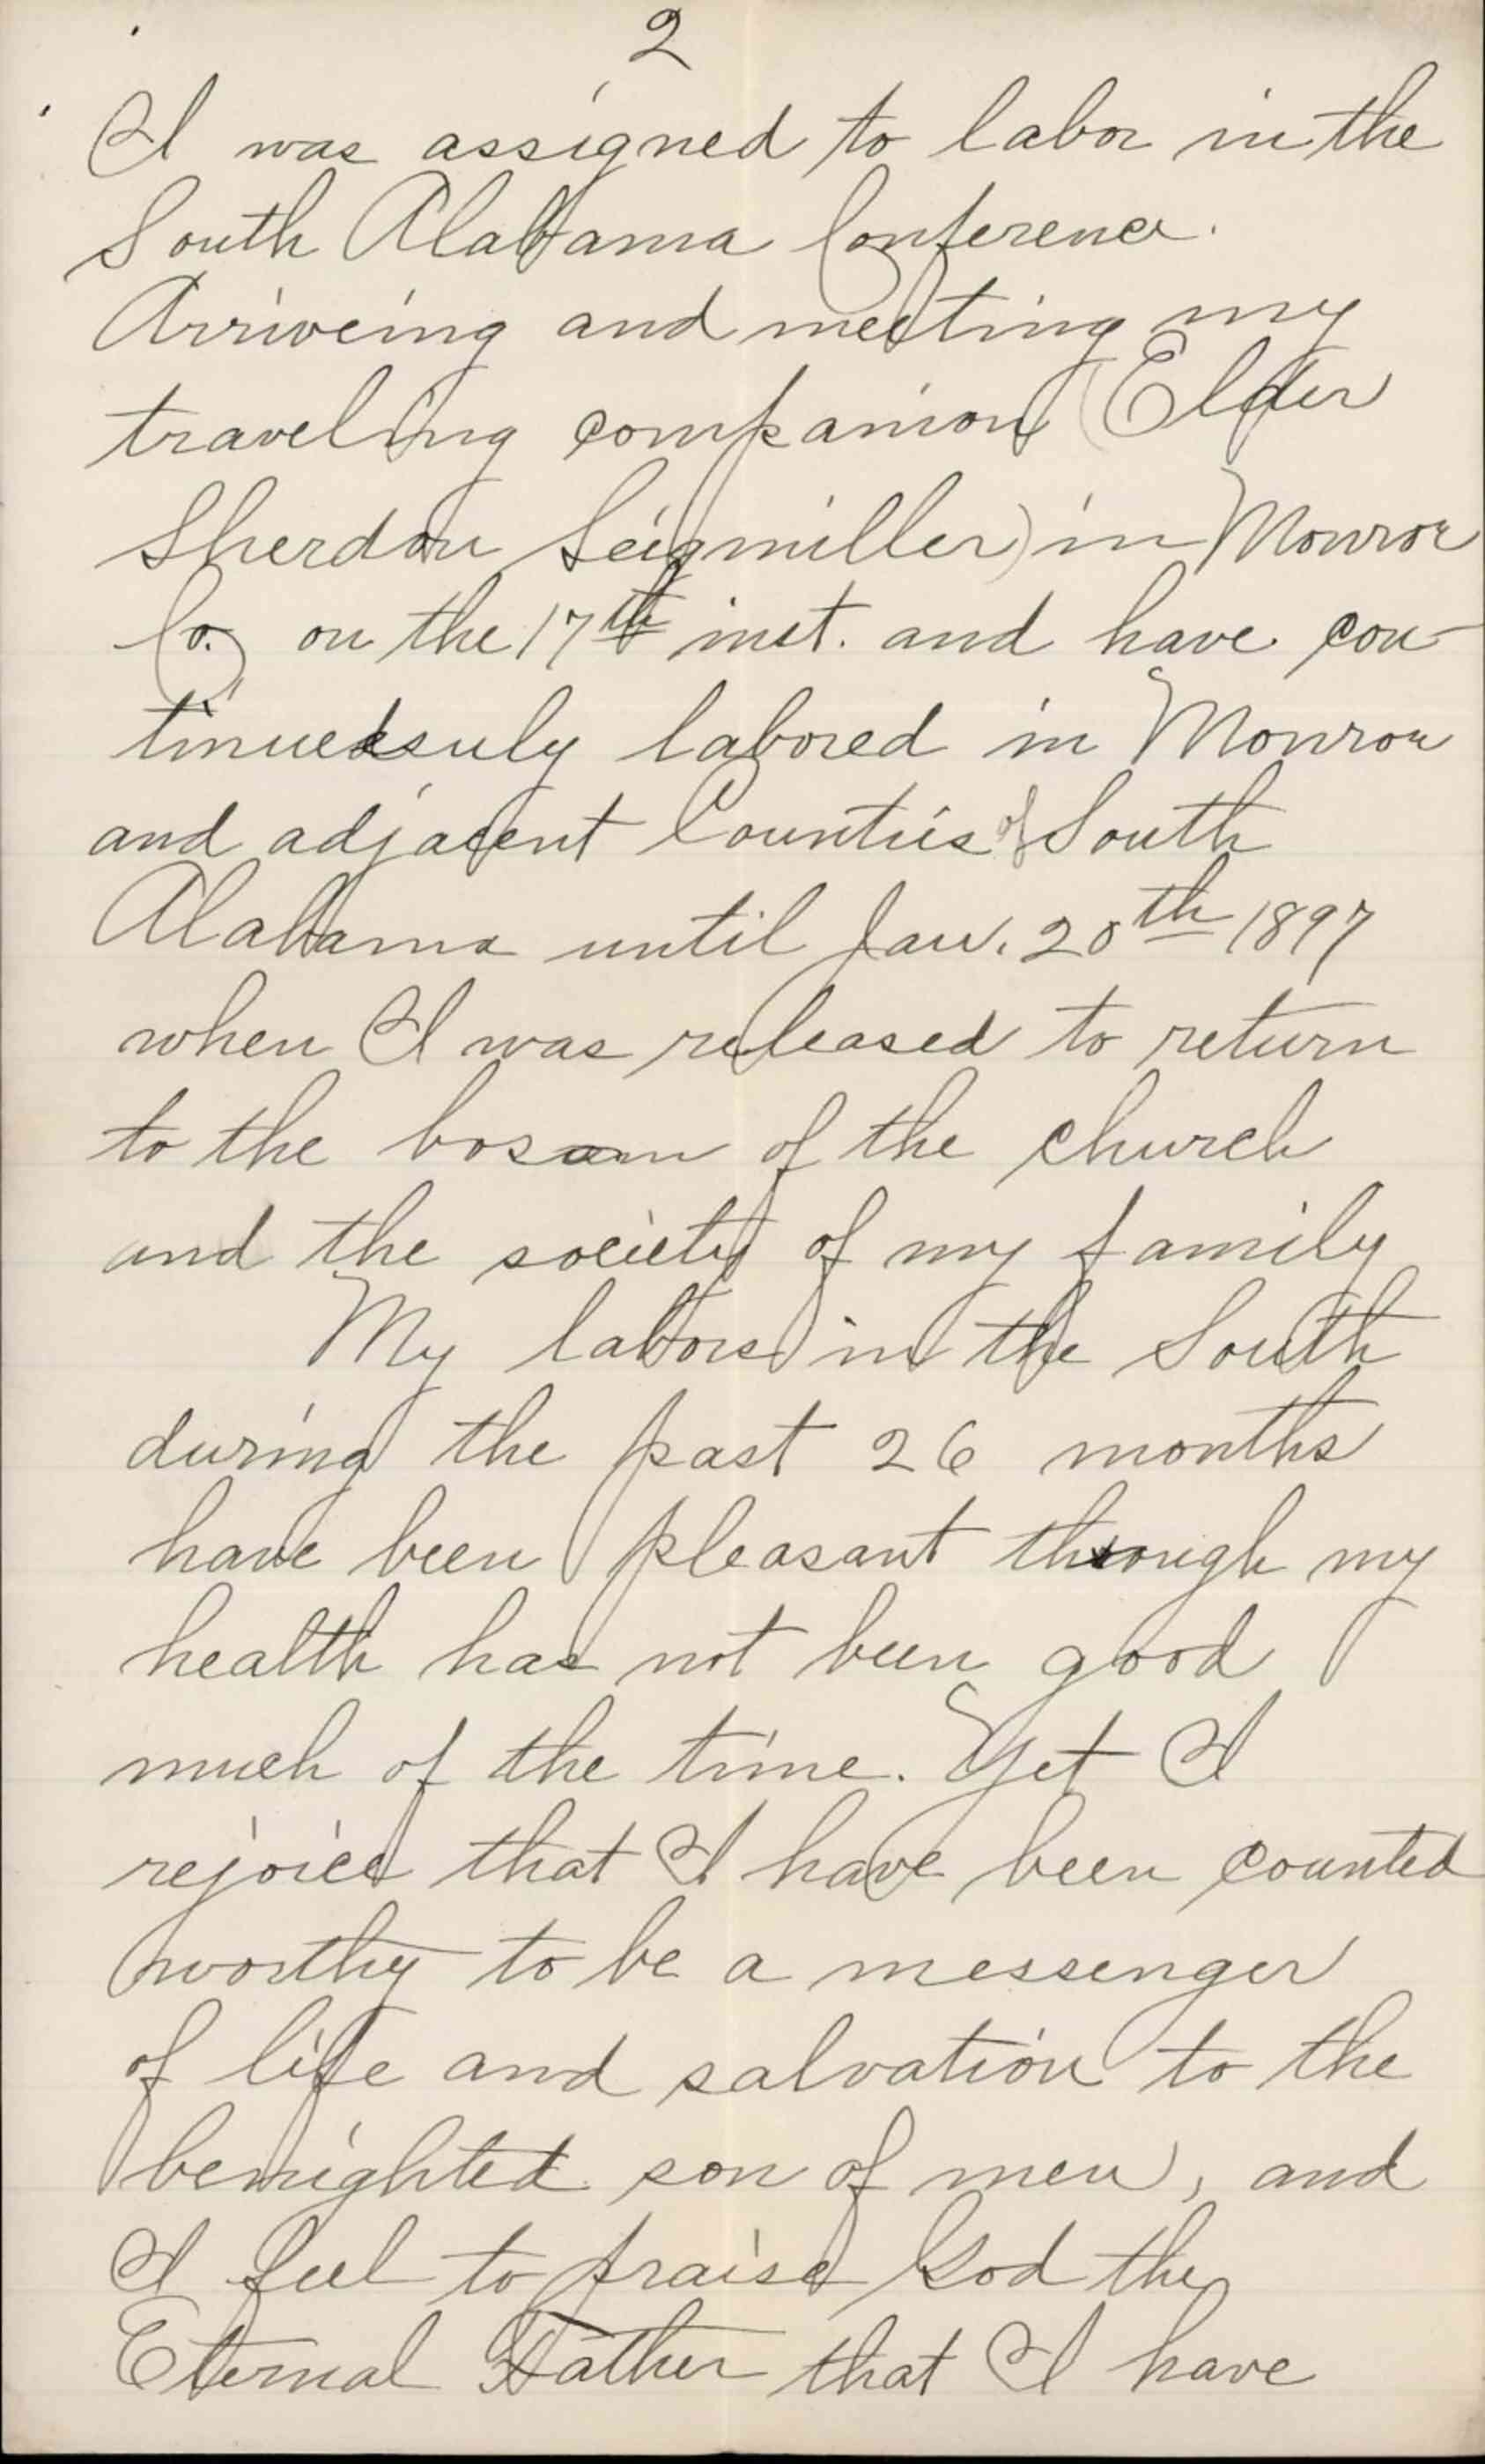 2
I was assigned to labor in the
South Alabama Conference.
Arriveing and meeting my
traveling companion (Elder
Sherdon Seigmiller) in Monroe
Co. on the 17th inst. and have con-
labored in Monroe
and adjacent Counties of South
Alabama until Jan. 20th 1897
when I was released to return
to the bosom of the church
and the society of my family
My labors in the South
during the past 26 months
have been pleasant through my
health has not been good
much of the time. Yet I
rejoice that I have been counted
worthy to be a messenger
of life and salvation to the
benighted son of men, and
I feel to praise God the
Eternal Father that I have